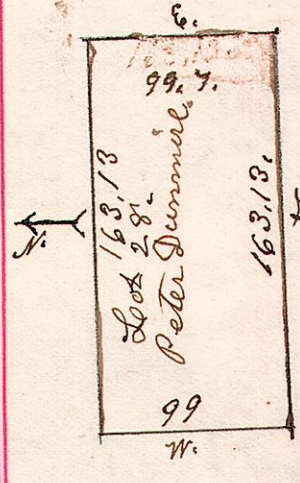 E.
99.7.
163.13
Lot 28.
Peter Dunmire
163.13.
N.
99
W.